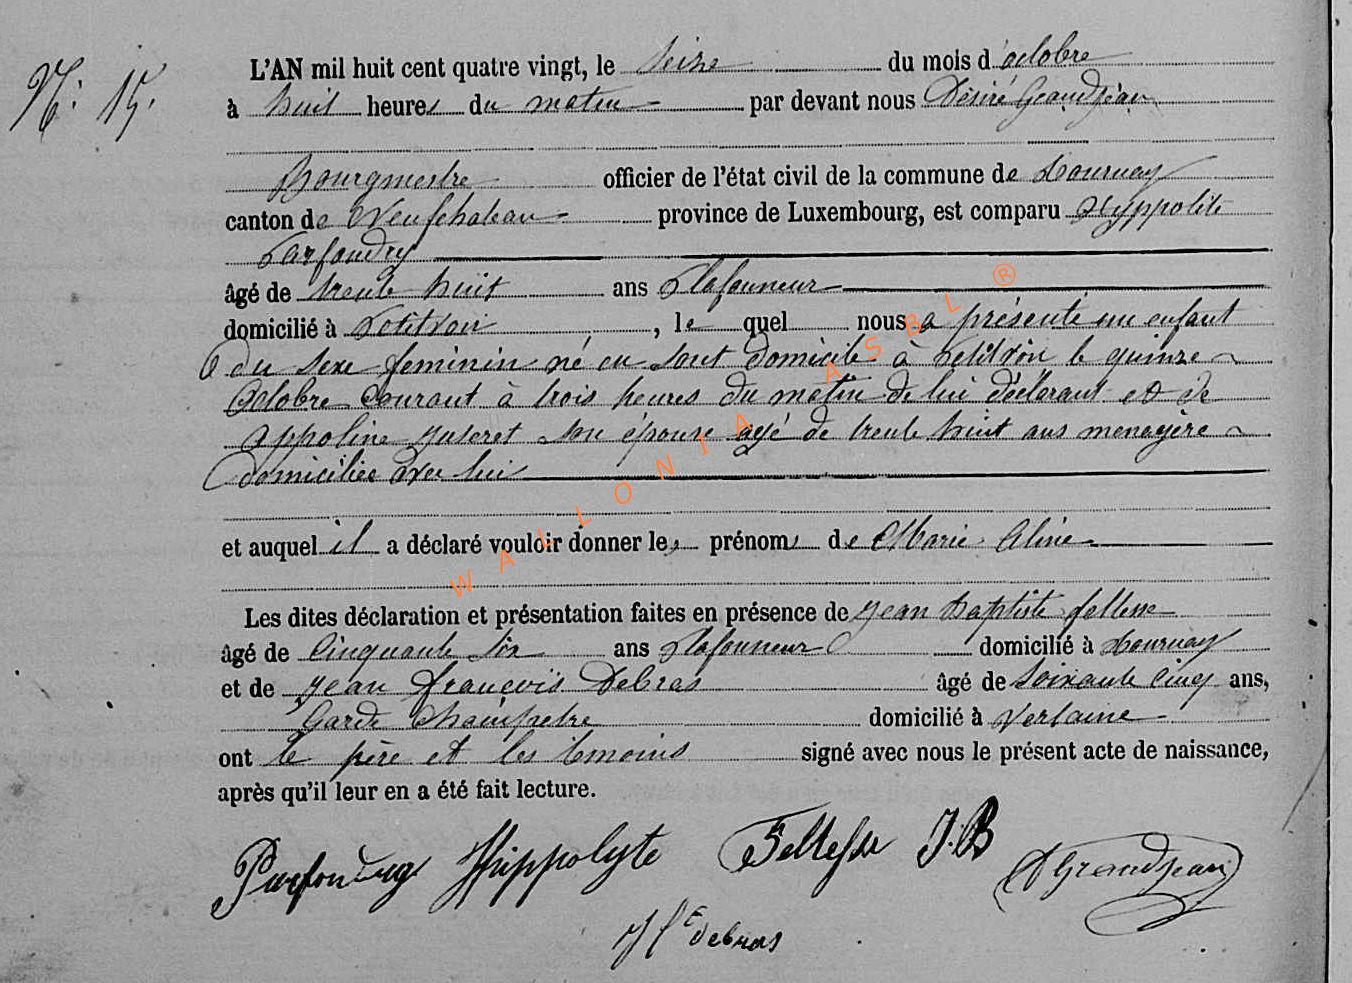 N: 15.
L'AN mil huit cent quatre vingt, le seize du mois d'octobre
à huit heures du matin par devant nous Désiré Grandjean
Bourgmestre officier de l'état civil de la commune de Tournay
canton de Neufchateau province de Luxembourg, est comparu Hyppolite
Parfondry
âgé de trente huit ans Plafonneur
domicilié à Petitvoir, le quel nous a présenté un enfant
du sexe feminin né en sont domicile à Petitvoir le quinze
Octobre courant à trois heures du matin de lui déclarant et de
Appoline son épouse agé de trente huit ans menagère
domiciliée avec lui
et auquel il a déclaré vouloir donner les prénoms de Marie Aline
Les dites déclaration et présentation faites en présence de Jean Baptiste
âgé de Cinquante six ans Plafonneur domicilié à Tournay
et de Jean François Debras âgé de soixante cinq ans,
Garde Champetre domicilié à Verlaine
ont le père et les témoins signé avec nous le présent acte de naissance,
après qu'il leur en a été fait lecture.
Parfondry Hippolyte J.B DGrandjean
debras
WALLONIA ASBL ®